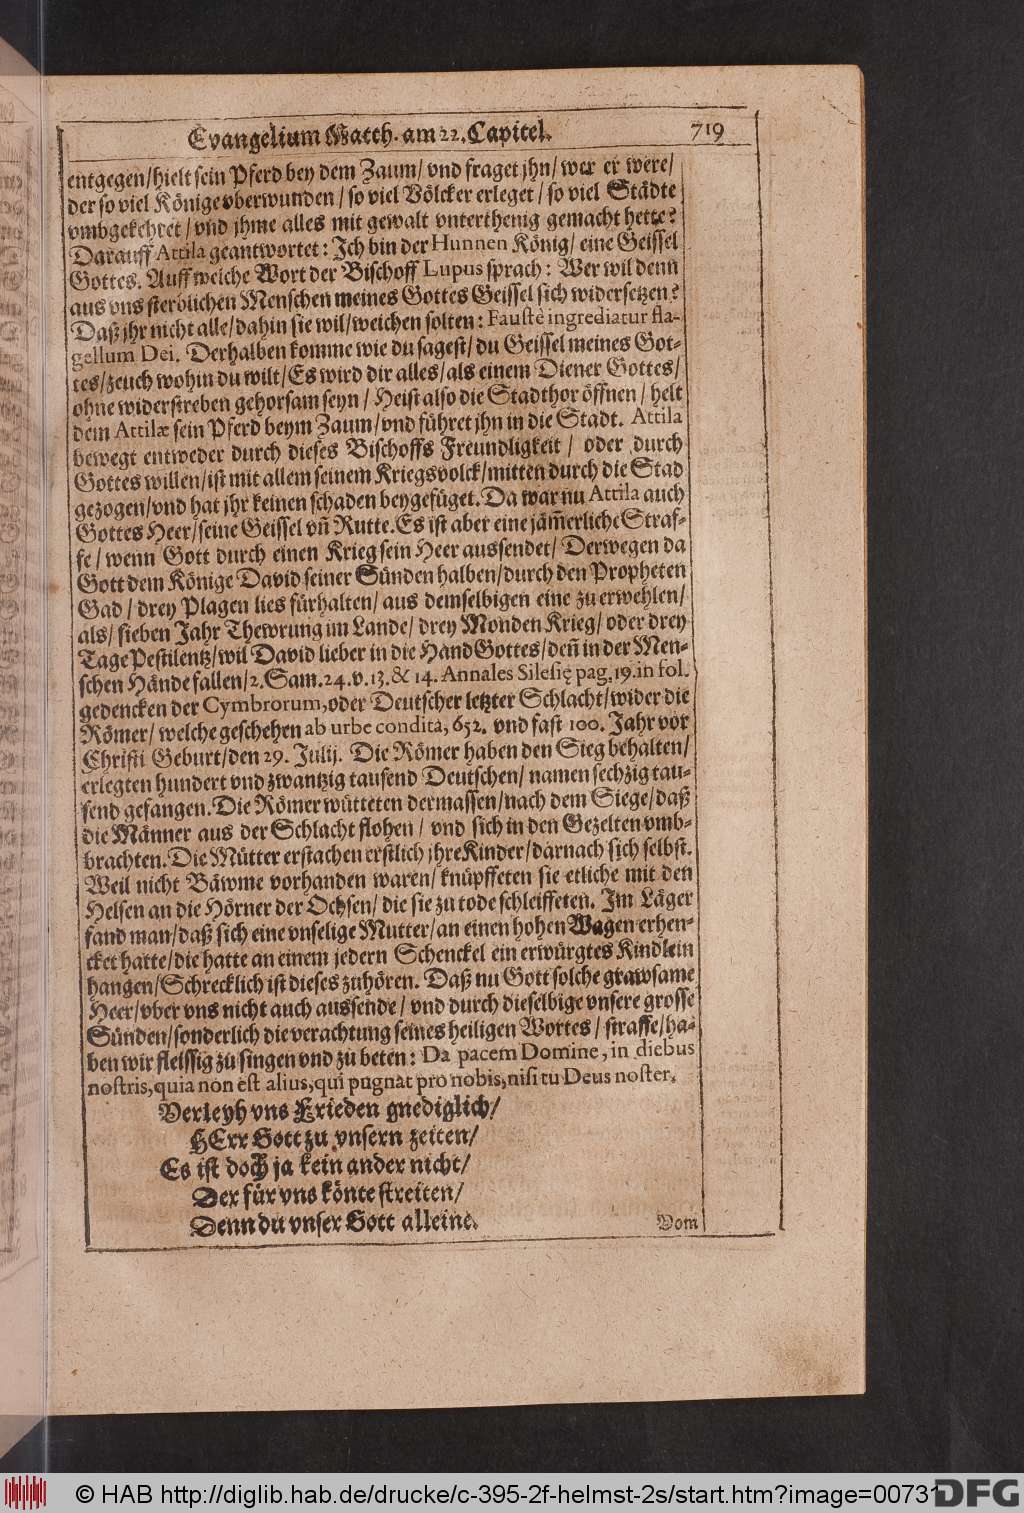 Evangelium Matth. am 22. Capitel. 719
entgegen/hielt sein Pferd bey dem Zaum/ vnd fraget jhn/ wer er were/
der so viel Könige vberwunden/ so viel Völcker erleget/ so viel Städte
vmbgekehret/ vnd jhme alles mit gewalt vnterthenig gemacht hette?
Darauff Attila geantwortet: Ich bin der Hunnen König/ eine Geissel
Gottes. Auff welche Wort der Bischoff Lupus sprach: Wer wil denn
aus vns sterblichen Menschen meines Gottes Geissel sich widersetzen?
Daß jhr nicht alle/dahin sie wil/weichen solten: Faustè ingrediatur fla-
gellum Dei. Derhalben komme wie du sagest/ du Geissel meines Got-
tes/zeuch wohin du wilt/Es wird dir alles/als einem Diener Gottes/
ohne widerstreben gehorsam seyn/ Heist also die Stadthor öffnen/ helt
dem Attilæ sein Pferd beym Zaum/vnd führet jhn in die Stadt. Attila
bewegt entweder durch dieses Bischoffs Freundligkeit/ oder durch
Gottes willen/ist mit allem seinem Kriegsvolck/mitten durch die Stad
gezogen/vnd hat jhr keinen schaden beygefüget. Da war nu Attila auch
Gottes Heer/seine Geissel vn̄ Rutte. Es ist aber eine jäm̄erliche Straf-
fe/ wenn Gott durch einen Krieg sein Heer aussendet/ Derwegen da
Gott dem Könige David seiner Sünden halben/durch den Propheten
Gad/ drey Plagen lies fürhalten/ aus demselbigen eine zu erwehlen/
als/ sieben Jahr Thewrung im Lande/ drey Monden Krieg/ oder drey
Tage Pestilentz/wil David lieber in die Hand Gottes/ den̄ in der Men-
schen Hände fallen/2. Sam. 24. v. 13. & 14. Annales Silesię pag. 19. in fol.
gedencken der Cymbrorum, oder Deutscher letzter Schlacht/wider die
Römer/ welche geschehen ab urbe condita, 652. vnd fast 100. Jahr vor
Christi Geburt/den 29. Julij. Die Römer haben den Sieg behalten/
erlegten hundert vnd zwantzig tausend Deutschen/ namen sechzig tau-
send gefangen. Die Römer wütteten dermassen/nach dem Siege/daß
die Männer aus der Schlacht flohen/ vnd sich in den Gezelten vmb-
brachten. Die Mütter erstachen erstlich jhre Kinder/darnach sich selbst.
Weil nicht Bäwme vorhanden waren/ knüpffeten sie etliche mit den
Helsen an die Hörner der Ochsen/ die sie zu tode schleiffeten. Im Läger
fand man/daß sich eine vnselige Mutter/an einen hohen Wagen erhen-
cket hatte/die hatte an einem jedern Schenckel ein erwürgtes Kindlein
hangen/Schrecklich ist dieses zuhören. Daß nu Gott solche grawsame
Heer/vber vns nicht auch aussende/ vnd durch dieselbige vnsere grosse
Sünden/sonderlich die verachtung seines heiligen Wortes/ straffe/ha-
ben wir fleissig zu singen vnd zu beten: Da pacem Domine, in diebus
nostris, quia non est alius, qui pugnat pro nobis, nisi tu Deus noster.
Verleyh vns Frieden gnediglich/
HErr Gott zu vnsern zeiten/
Es ist doch ja kein ander nicht/
Der für vns könte streiten/
Denn du vnser Gott alleine.
Vom
© HAB http://diglib.hab.de/drucke/c-395-2f-helmst-2s/start.htm?image=00731
DFG